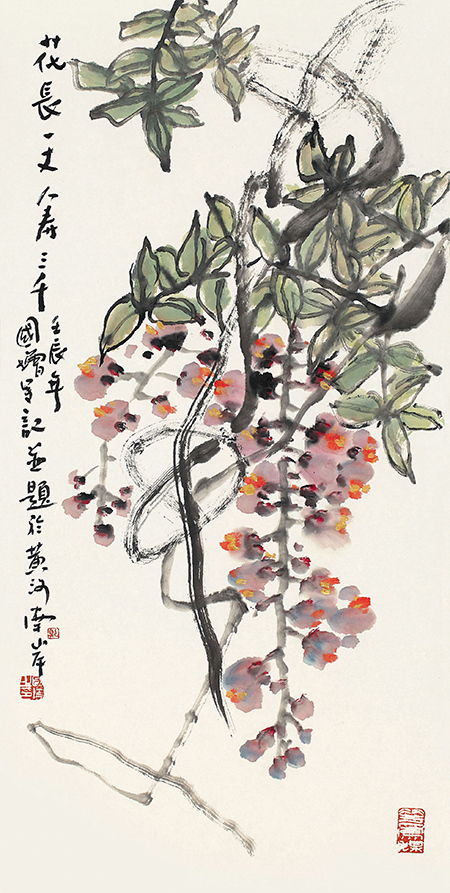 花長一丈人壽三千
壬辰年
國增呈記並題於黃河南岸